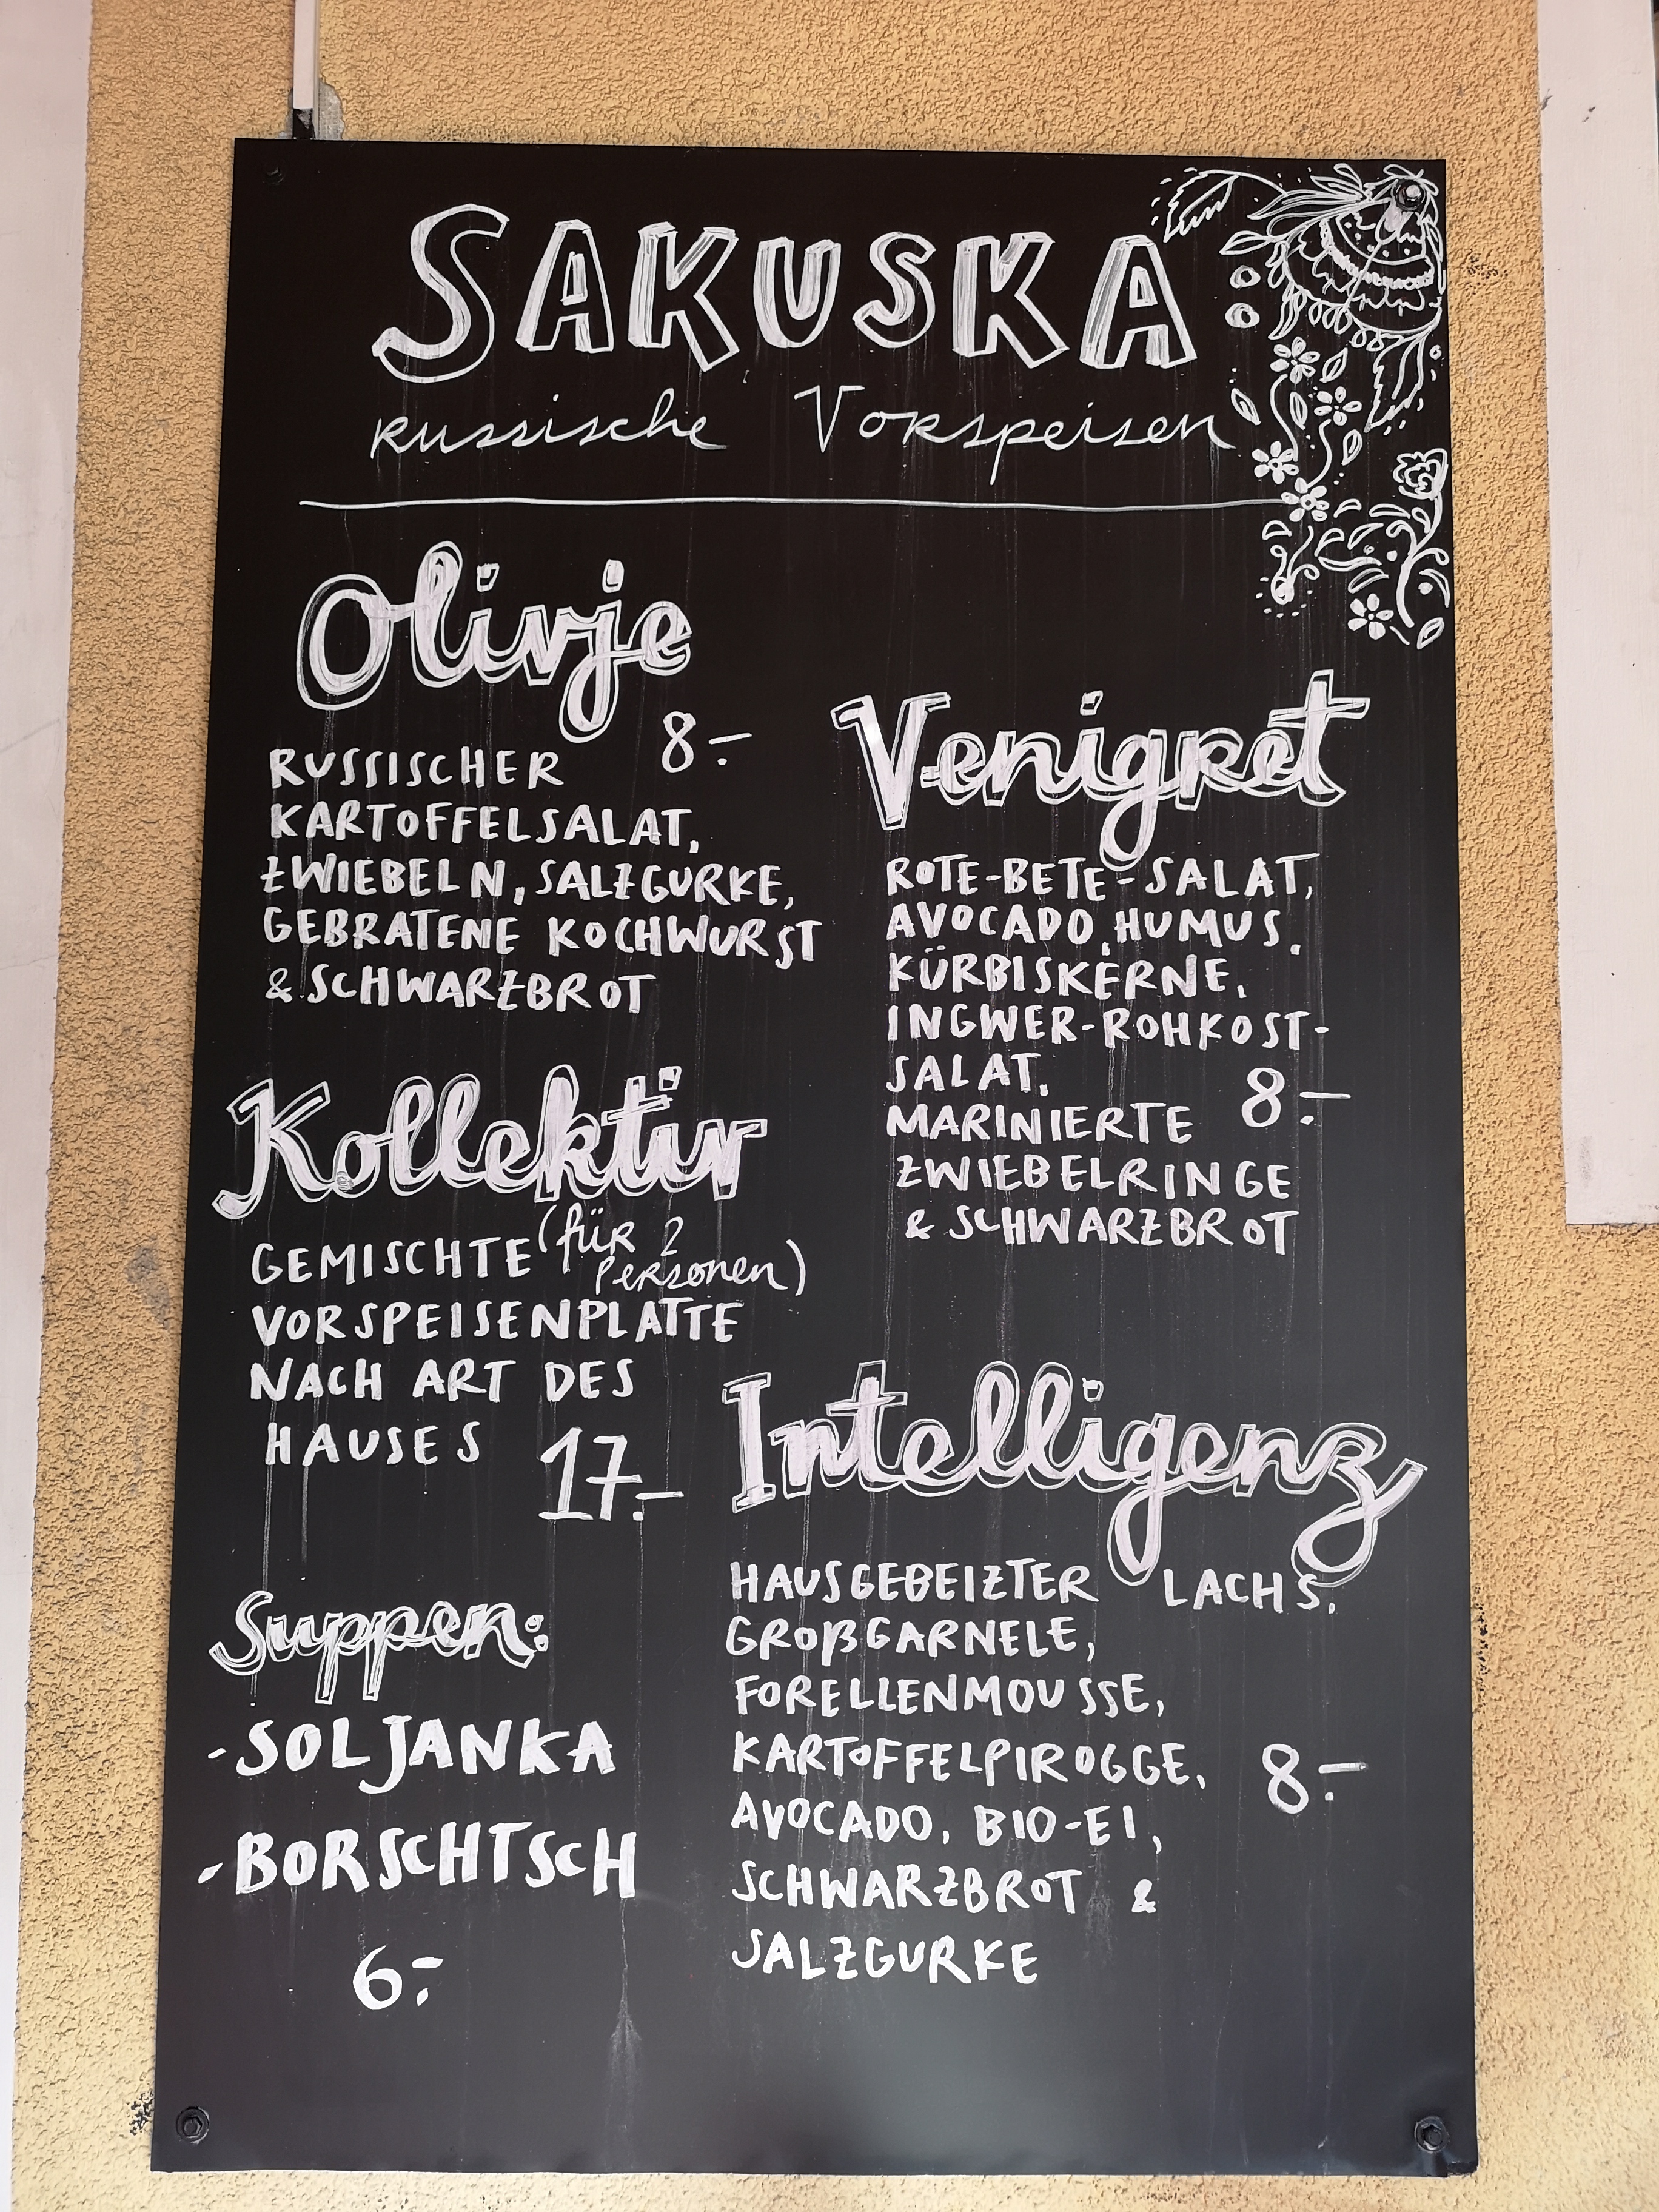 SAKUSKA
russische Vorspeisen
Olivje
8.-
RUSSISCHER
KARTOFFELSALAT,
ZWIEBELN, SALZGURKE,
GEBRATENE KOCHWURST
& SCHWARZBROT
Venigret
ROTE-BETE-SALAT,
AVOCADO, HUMUS,
KÜRBISKERNE,
INGWER-ROHKOST-
SALAT,
MARINIERTE 8.-
ZWIEBELRINGE
& SCHWARZBROT
Kollektiv
(für 2
Personen)
GEMISCHTE
VORSPEISENPLATTE
NACH ART DES
HAUSES 17.-
Intelligenz
HAUSGEBEIZTER LACHS,
GROßGARNELE,
FORELLENMOUSSE,
KARTOFFELPIROGGE, 8.-
AVOCADO, BIO-EI,
SCHWARZBROT &
SALZGURKE
Suppen:
- SOLJANKA
- BORSCHTSCH
6.-